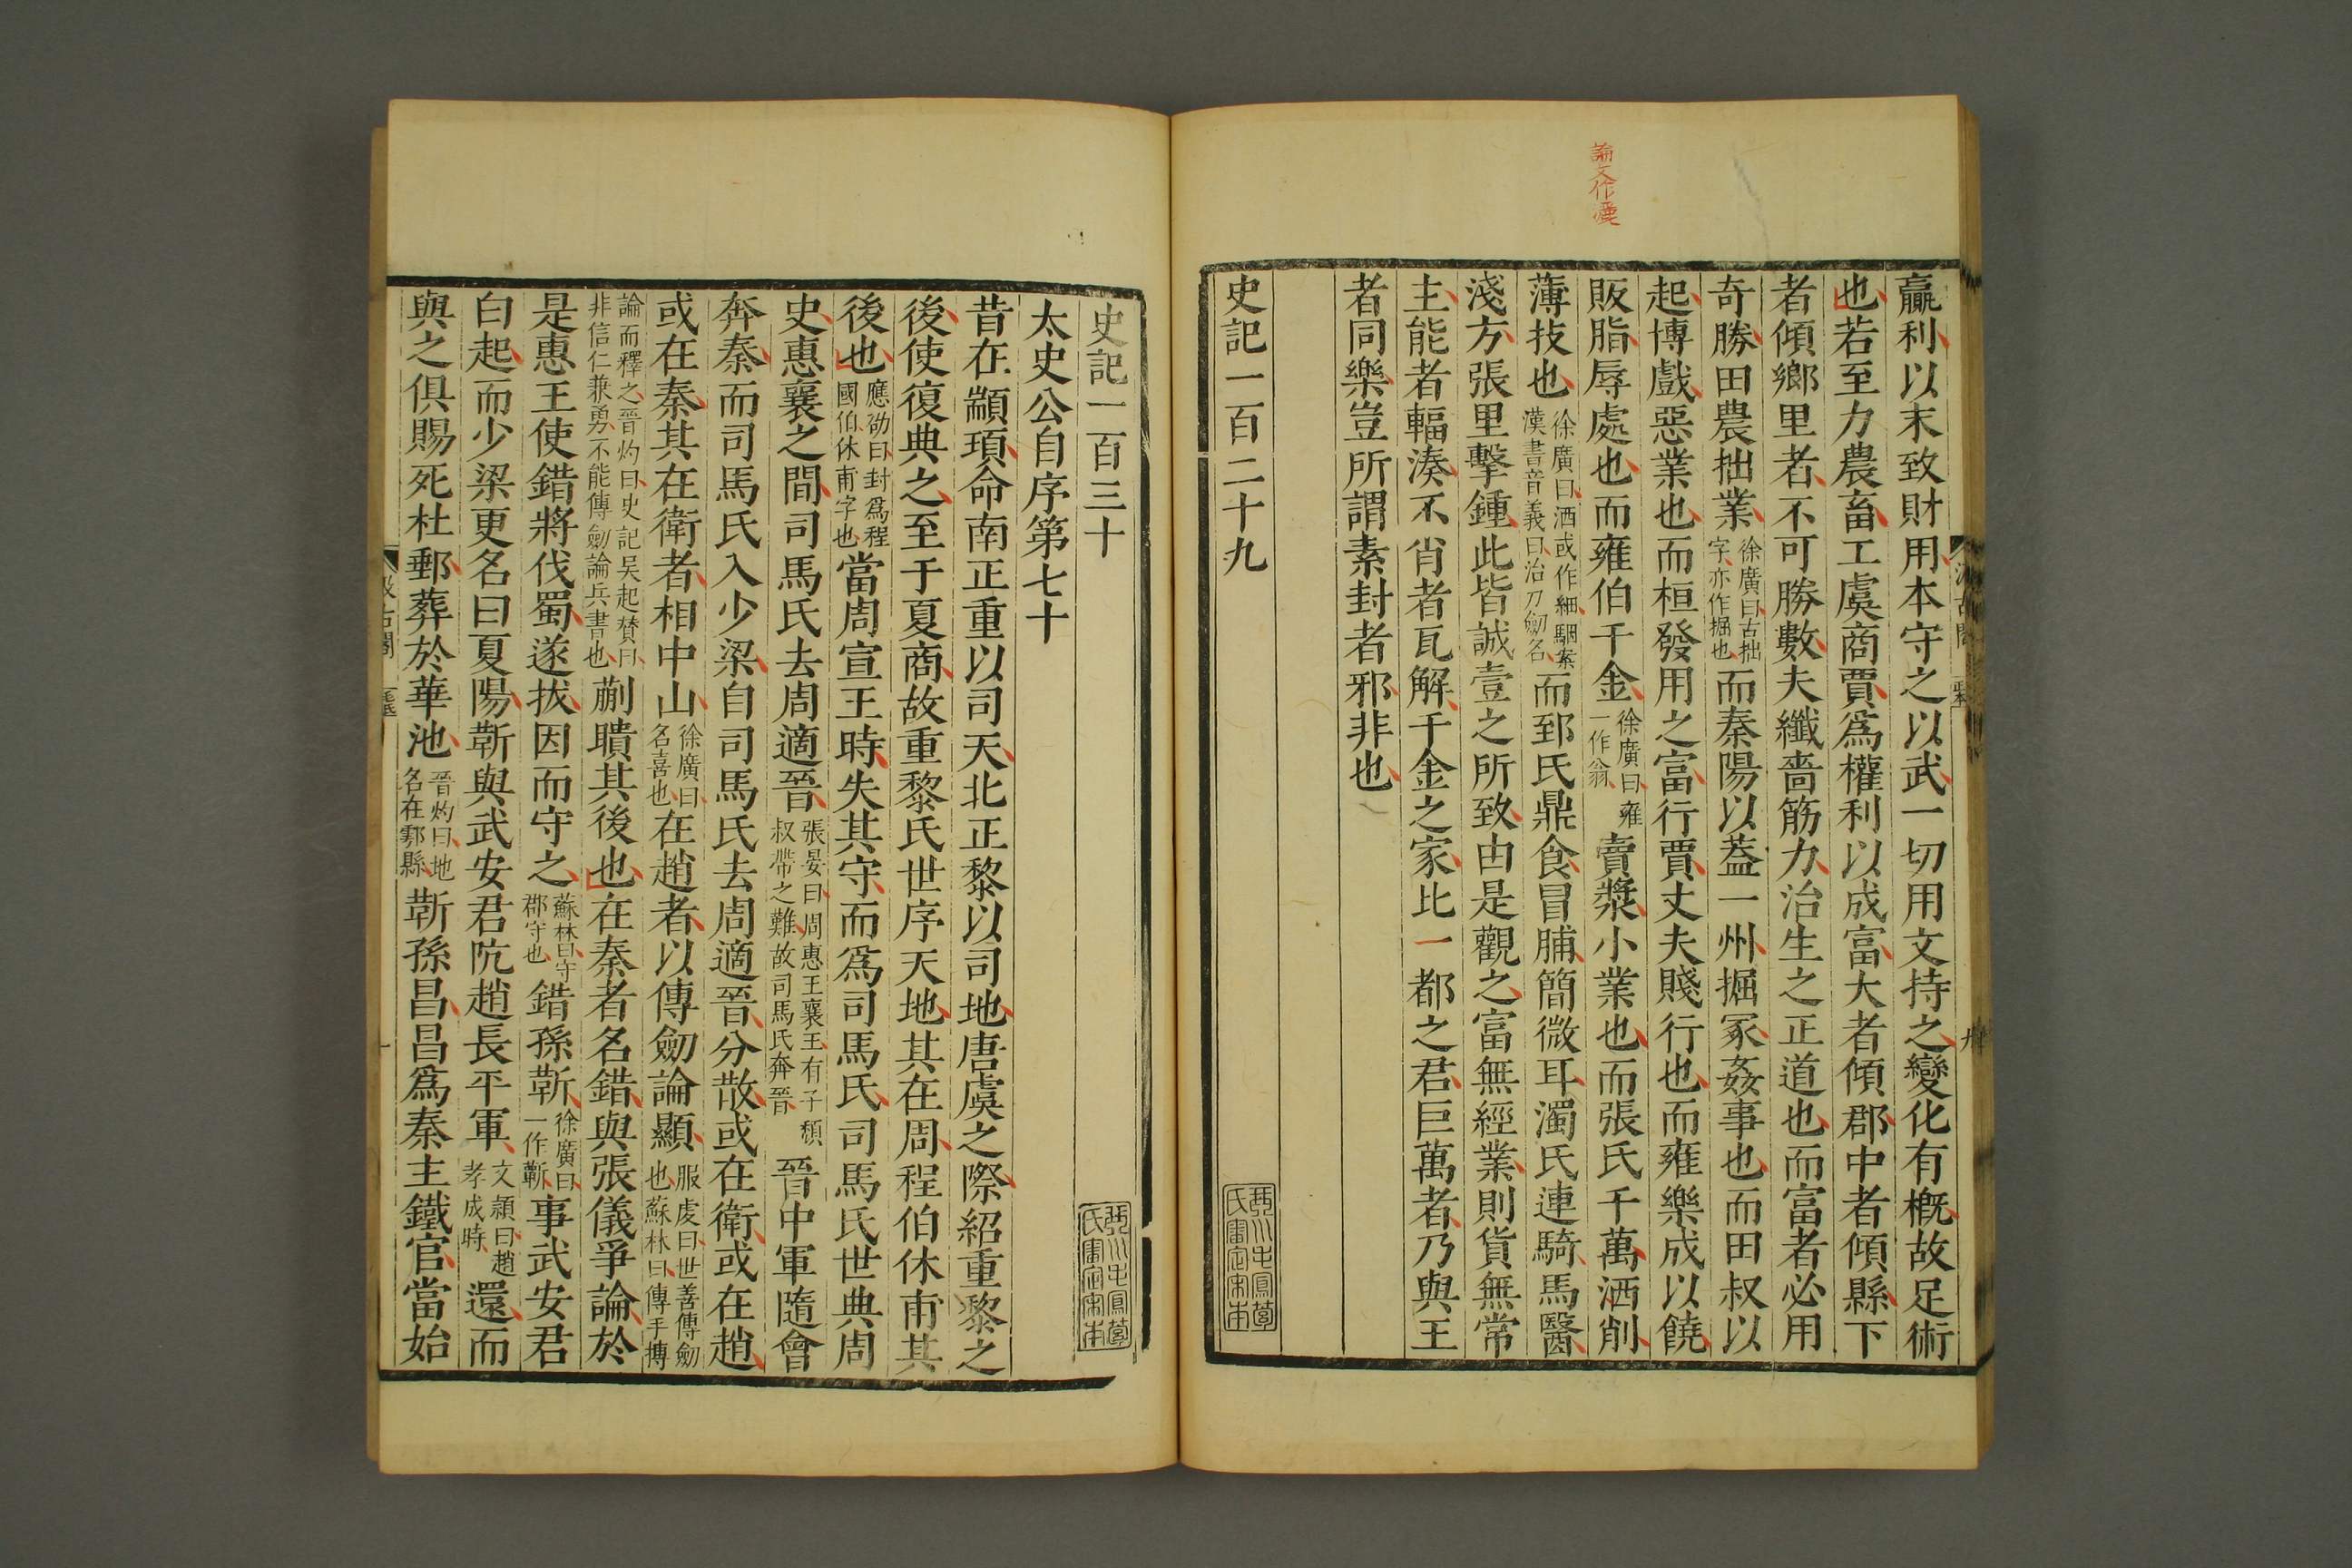 贏利以末致財用本守之以武一切用文持之變化有槪故足術
也若至力農畜工虞商賈爲權利以成富大者傾郡中者傾縣下
者傾鄉里者不可勝數夫纖嗇筋力治生之正道也而富者必用
奇勝田農拙業徐廣曰古拙字亦作掘也而秦陽以蓋一州掘冢姦事也而田叔以
起博戲惡業也而桓發用之富行賈丈夫賤行也而雍樂成以饒
販脂辱處也而雍伯千金徐廣曰雍一作翁賣漿小業也而張氏千萬洒削
薄技也徐廣曰洒或作細駰案漢書音義曰治刀劒名而郅氏鼎食冒脯簡微耳濁氏連騎馬醫
淺方張里擊鍾此皆誠壹之所致由是觀之富無經業則貨無常
主能者輻湊不肖者瓦解千金之家比一都之君巨萬者乃與王
者同樂豈所謂素封者邪非也
史記一百二十九
史記一百三十
太史公自序第七十
昔在顓頊命南正重以司天北正黎以司地唐虞之際紹重黎之
後使復典之至于夏商故重黎氏世序天地其在周程伯休甫其
後也應劭曰封爲程國伯休甫字也當周宣王時失其守而爲司馬氏司馬氏世典周
史惠襄之間司馬氏去周適晉張晏曰周惠王襄王有子頹叔帶之難故司馬氏奔晉晉中軍隨會
奔秦而司馬氏入少梁自司馬氏去周適晉分散或在衛或在趙
或在秦其在衛者相中山徐廣曰名喜也在趙者以傳劒論顯服虔曰世善傳劒也蘇林曰傳手搏
論而釋之晉灼曰史記吳起贊曰非信仁兼勇不能傳劒論兵書也蒯聵其後也在秦者名錯與張儀爭論於
是惠王使錯將伐蜀遂拔因而守之蘇林曰守郡守也錯孫靳徐廣曰一作蘄事武安君
白起而少梁更名曰夏陽靳與武安君阬趙長平軍文穎曰趙孝成時還而
與之俱賜死杜郵葬於華池晉灼曰地名在鄠縣靳孫昌昌爲秦主鐵官當始